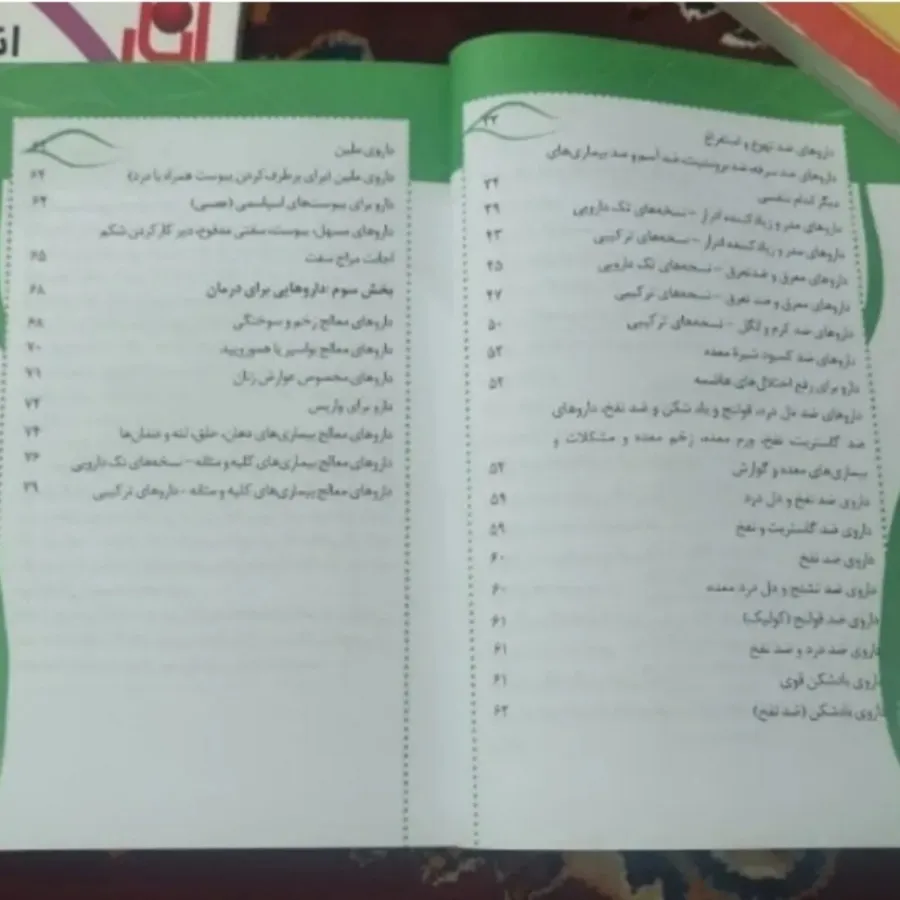 داروهای ضد تهوع و استفراغ ۳۳
داروهای ضد سرفه، ضد برونشیت، ضد آسم و ضد بیماری‌های
دیگر اندام تنفسی ۳۴
داروهای مدر و زیادکننده ادرار – نسخه‌های تک دارویی ۳۹
داروهای مدر و زیادکننده ادرار – نسخه‌های ترکیبی ۴۳
داروهای معرق و ضدتعرق – نسخه‌های تک دارویی ۴۵
داروهای معرق و ضد تعرق – نسخه‌های ترکیبی ۴۷
داروهای ضد کرم و انگل – نسخه‌های ترکیبی ۵۰
داروهای ضد کمبود شیرهٔ معده ۵۲
دارو برای رفع اختلال‌های هاضمه ۵۲
داروهای ضد دل درد، قولنج و باد شکن و ضد نفخ، داروهای
ضد گاستریت، نفخ، ورم معده، زخم معده و مشکلات و
بیماری‌های معده و گوارش ۵۲
داروی ضد نفخ و دل درد ۵۹
داروی ضد گاستریت و نفخ ۵۹
داروی ضد نفخ ۶۰
داروی ضد تشنج و دل درد معده ۶۰
داروی ضد قولنج (کولیک) ۶۱
داروی ضد درد و ضد نفخ ۶۱
داروی بادشکن قوی ۶۱
داروی بادشکن (ضد نفخ) ۶۲
داروی ملین
داروی ملین (برای برطرف کردن یبوست همراه با درد) ۶۴
دارو برای یبوست‌های اسپاسمی (عصبی) ۶۴
داروهای مسهل، یبوست، سفتی مدفوع، دیر کار کردن شکم
اجابت مزاج سفت ۶۵
بخش سوم :داروهایی برای درمان ۶۸
داروهای معالج زخم و سوختگی ۶۸
داروهای معالج بواسیر یا هموروئید ۷۰
داروهای مخصوص عوارض زنان ۷۱
دارو برای واریس ۷۲
داروهای معالج بیماری‌های دهان، حلق، لثه و دندان‌ها ۷۴
داروهای معالج بیماری‌های کلیه و مثانه – نسخه‌های تک دارویی ۷۶
داروهای معالج بیماری‌های کلیه و مثانه - داروهای ترکیبی ۷۹